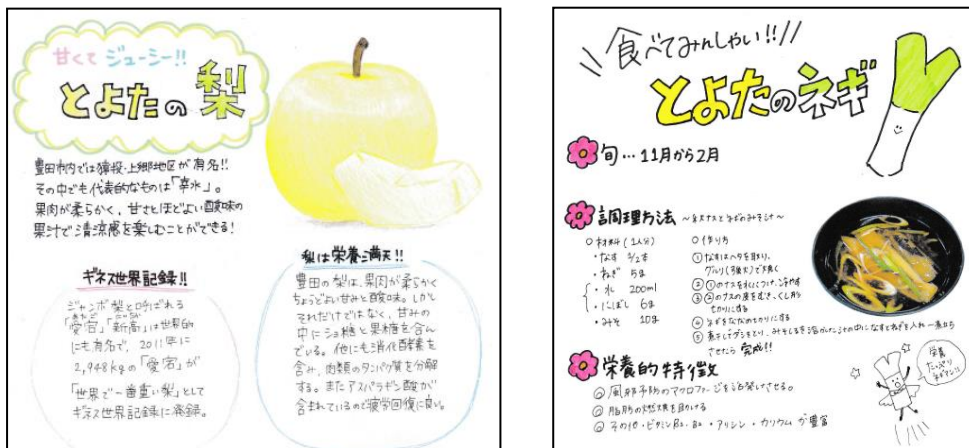 甘くて ジューシー!!
とよたの 梨
豊田市内では猿投・上郷地区が有名!!
その中でも代表的なものは「幸水」。
果肉が柔らかく、甘さとほどよい酸味の
果汁で清涼感を楽しむことができる!
ギネス世界記録!!
ジャンボ梨と呼ばれる
「愛宕」「新高」は世界的
にも有名で、2011年に
2,948kgの「愛宕」が
「世界で一番重い梨」として
ギネス世界記録に登録。
梨は栄養満天!!
豊田の梨は、果肉が柔らかく
ちょうどよい甘みと酸味。しかし
それだけではなく、甘みの
中にショ糖と果糖を含ん
でいる。他にも消化酵素を
含み、肉類のタンパク質を分解
する。またアスパラギン酸が
含まれているので疲労回復に良い。
食べてみんしゃい!!
とよたのネギ
旬…11月から2月
調理方法 ~焼きナスとネギのみそ汁~
○材料(1人分)
・なす 1/2本
・ねぎ 5g
・水 200ml
・にぼし 6g
・みそ 10g
○作り方
① なすはヘタを取り、
グリル(強火)で焼く
② ①のナスを水につけ、冷やす
③ ②のナスの皮をむき、くし形に
切りにする
④ ネギをななめ切りにする
⑤ 煮干しでダシをとり、みそしるを溶かした汁の中になすとねぎを入れ一煮立ち
させたら 完成!!
栄養的特徴
◎ 風邪予防のマクロファージを活発にさせる。
◎ 脂肪の燃焼を助ける
◎ その他・ビタミンB1、B2・アリシン・カリウムが豊富
栄養
たっぷり
ネギマン!!